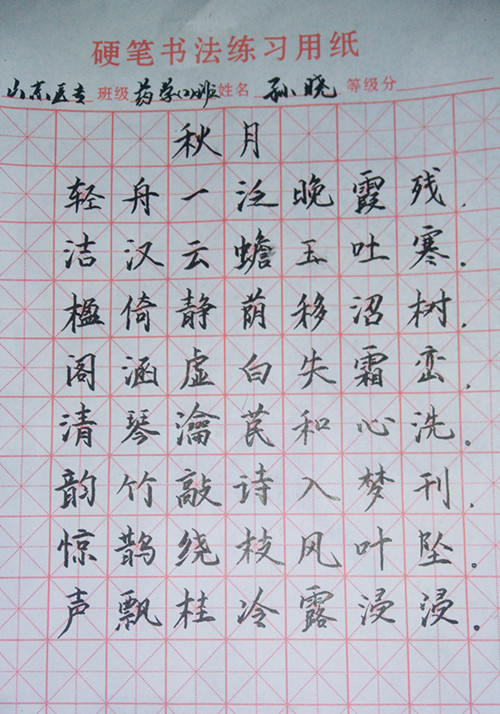 硬笔书法练习用纸
山东医专 班级 药学(2)班 姓名 孙晓 等级分
秋月
轻舟一泛晚霞残.
洁汉云蟾玉吐寒.
楹倚静荫移沼树.
阁涵虚白失霜峦.
清琴瀹茗和心洗.
韵竹敲诗入梦刊.
惊鹊绕枝风叶坠.
声飘桂冷露浸浸.